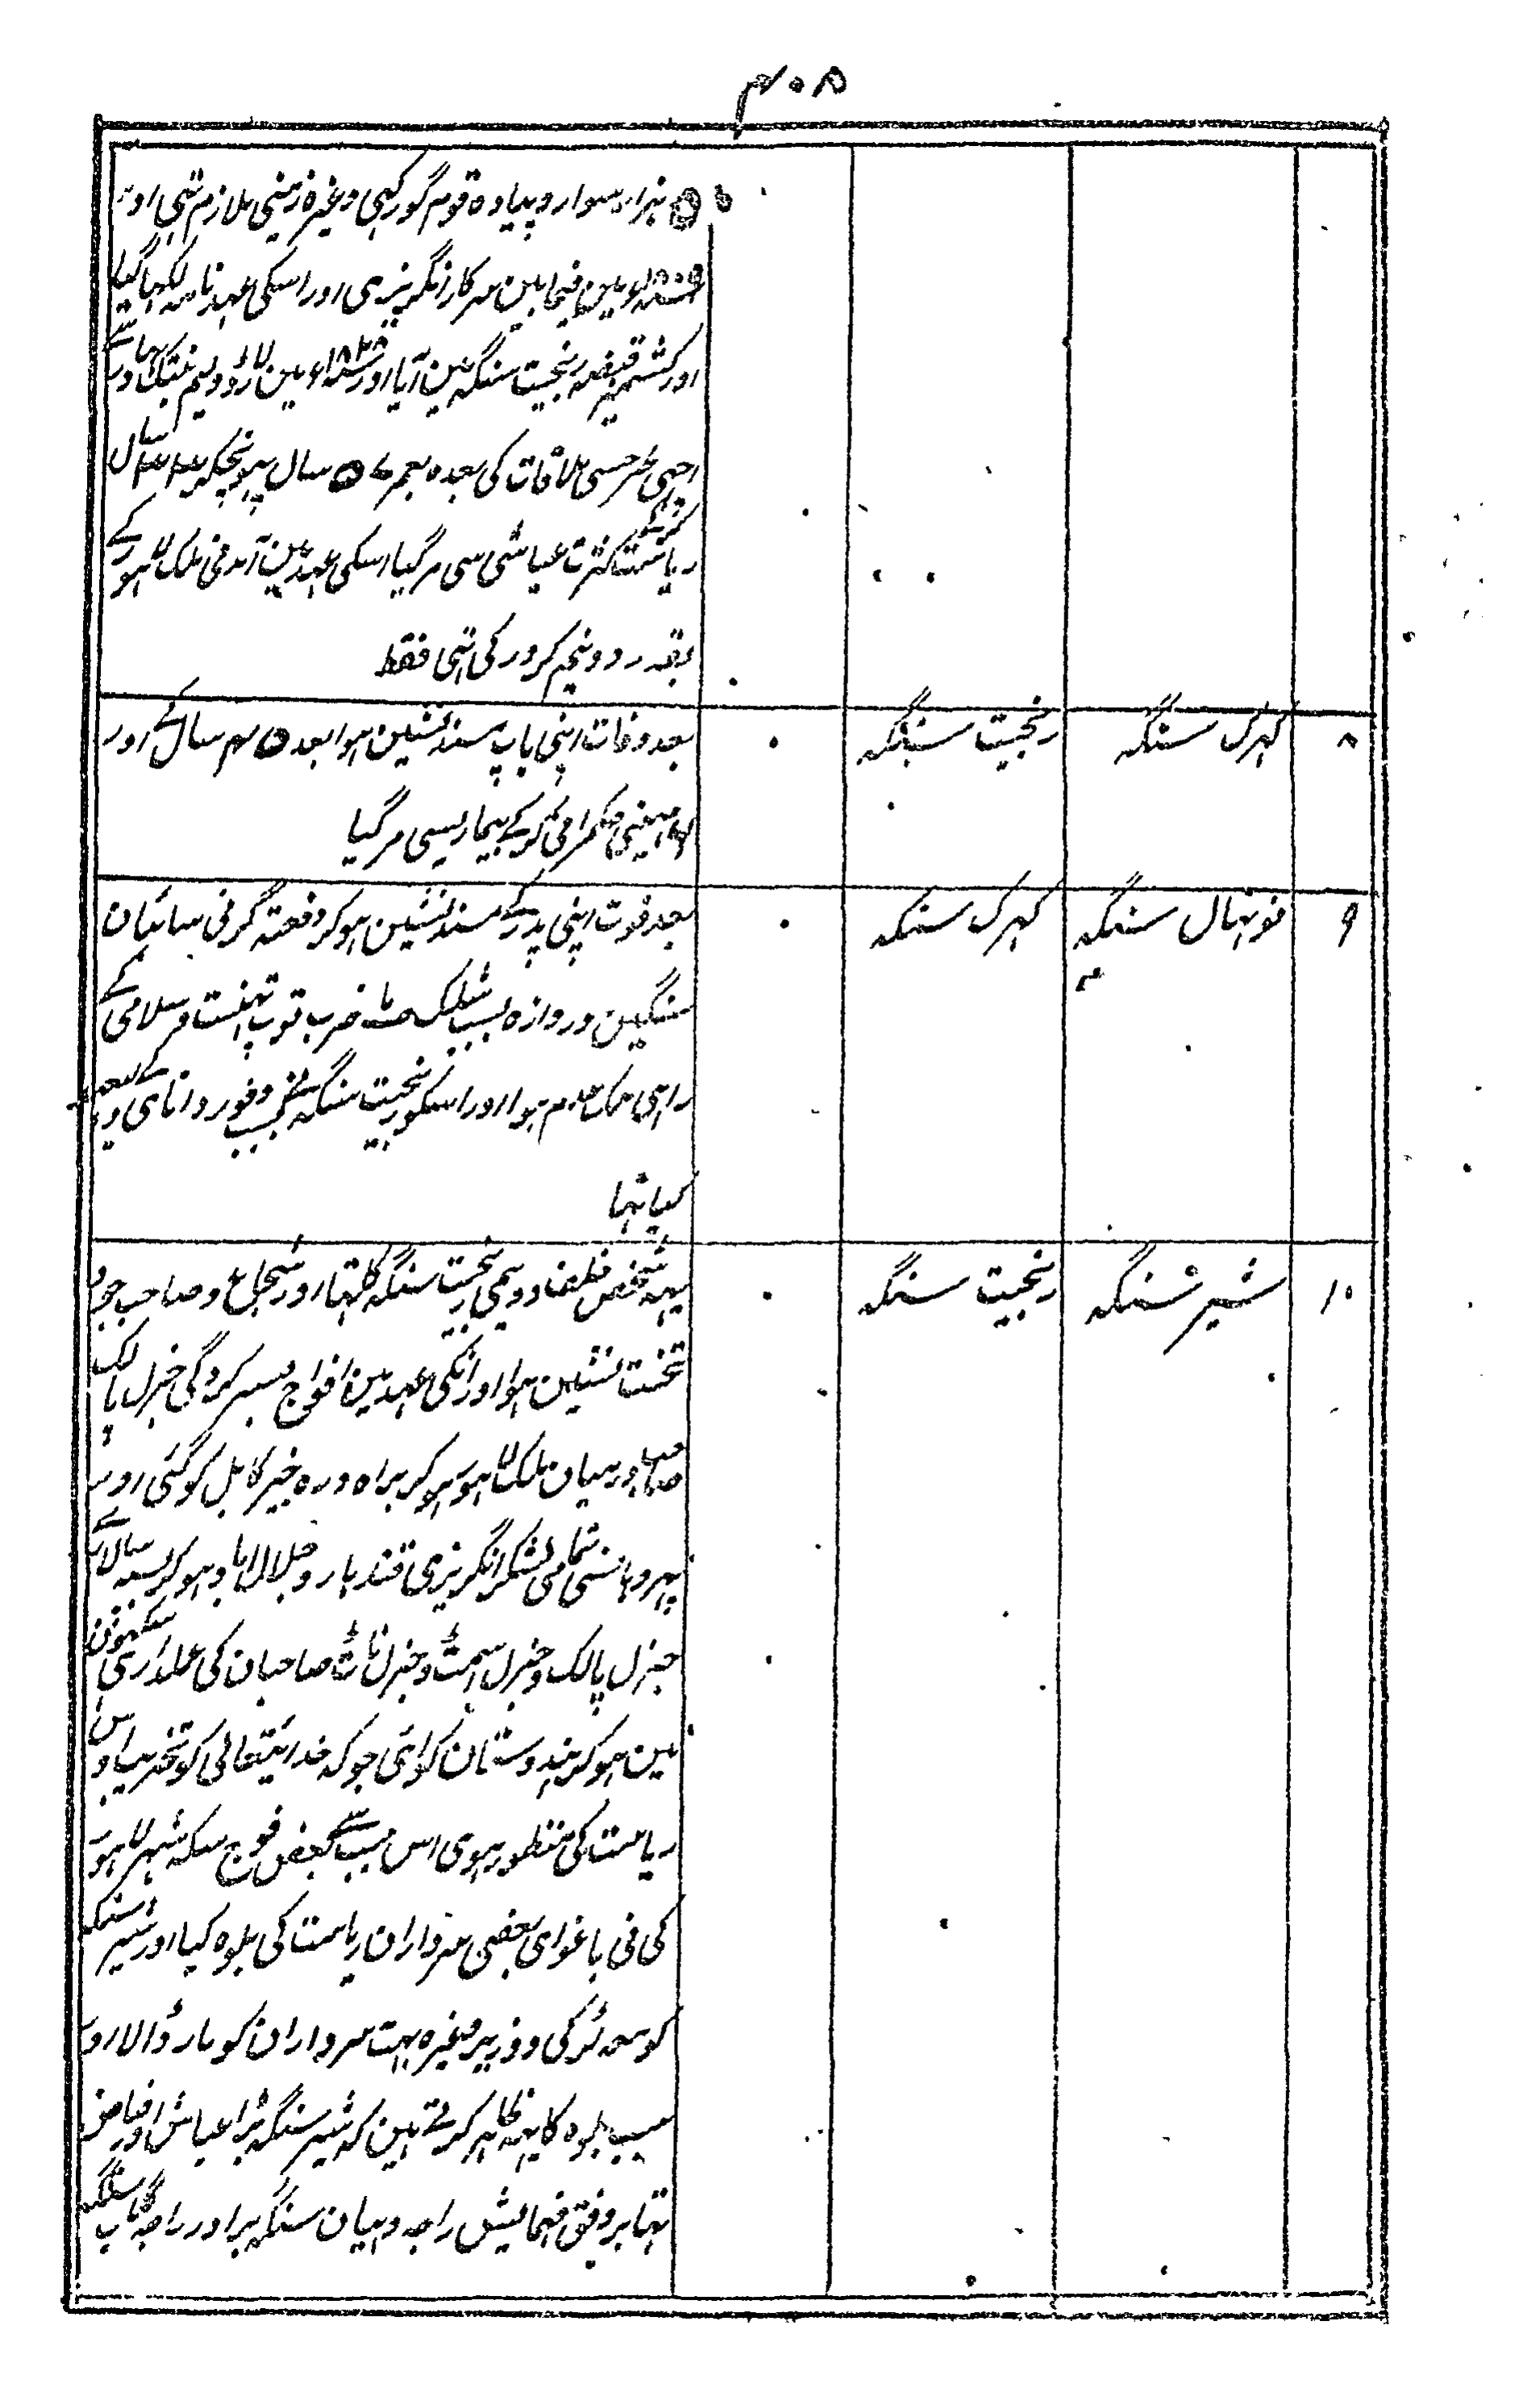 ۴۰۸
۵۰ ہزار سوار و پیادہ قوم گورکہی وغیرہ زمینی ملازم تہی اور
۱۸۰۹ء مین فیمابین سرکار انگریزی اور اسکی عہدنامہ لکہا گیا
اور کشمیر قبضہ رنجیت سنگہ مین آیا اور ۱۸۳۸ء مین لارڈ ولیم بنٹک بہادر سے
اچہی طرحسی ملاقات کی بعدہ بعمر ۵۷ سال پہونچکر سال
ریاست کرکے کثرت عیاشی سی مرگیا اسکی عہد مین آمدنی ملک لاہور کے
بقدر دو نیم کرور کی تہی فقط
۸ کہرک سنگہ رنجیت سنگہ ۰ بعد وفات اپنی باپ مسند نشین ہوا بعد ۴۵ سال کے اور
مہینی حکمرانی کرکے بیماریسی مرگیا
۹ نونہال سنگہ کہرک سنگہ ۰ بعد فوت اپنی پدر کے مسند نشین ہوکر دفعتہ گرنی سائبان
سنگین دروازہ بسبب شلک ضرب توپ تہنیت و سلامی کے
راہی ملک عدم ہوا اور اسکو رنجیت سنگہ نے بسبب وفور دانائی کے
کیا تہا
۱۰ شیر سنگہ رنجیت سنگہ ۰ یہہ شخص خلف دویمی رنجیت سنگہ کا تہا اور شجاع و صاحب جود
تخت نشین ہوا اور انکی عہد مین افواج بسرکردگی جنرل پالک
صاحب درمیان ملک لاہور ہوکر براہ درہ خیبر کابل کو گئی اور
پہر وہانسی تمامی لشکر انگریزی قندہار و جلال اباد ہوکر بسپہ سالاری
جنرل پالک و جنرل اسمٹ و جنرل ناٹ صاحبان کی عملداری سکہون
مین ہوکر ہندوستان کو ائی جوکہ خدایتعالی کو تخریب اوس
ریاست کی منظور ہوی اس سبب سے بعض فوج سکہ شہر لاہور
کی نی باغوای بعضی سرداران ریاست کی بلوہ کیا اور شیر سنگہ
کو معہ لڑکی و وزیر وغیرہ بہت سرداران کو مار ڈالا اور
سبب بلوہ کا یہہ ظاہر کرتے ہین کہ شیر سنگہ بڑا عیاش اور فیاض
تہا بر وفق فہمایش راجہ دہیان سنگہ برادر راجہ گلاب سنگہ